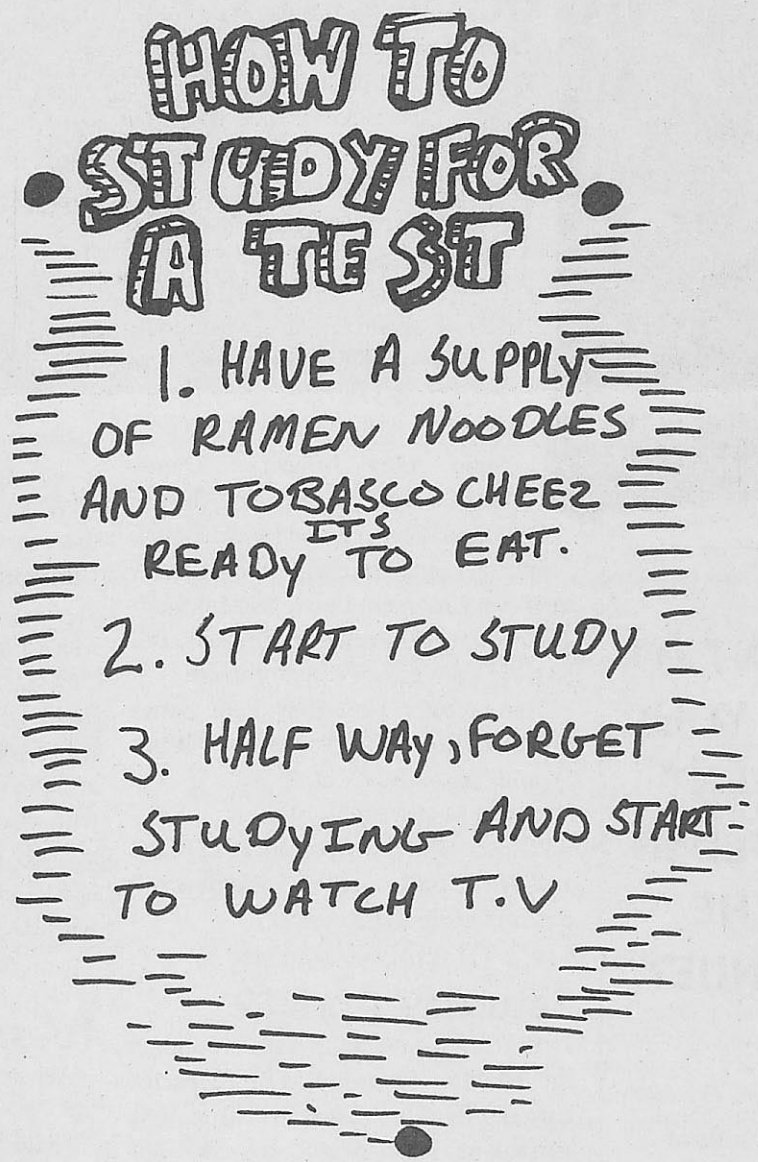 HOW TO
STUDY FOR
A TEST
1. HAVE A SUPPLY
OF RAMEN NOODLES
AND TOBASCO CHEEZ
ITS
READY TO EAT.
2. START TO STUDY
3. HALF WAY, FORGET
STUDYING AND START
TO WATCH T.V